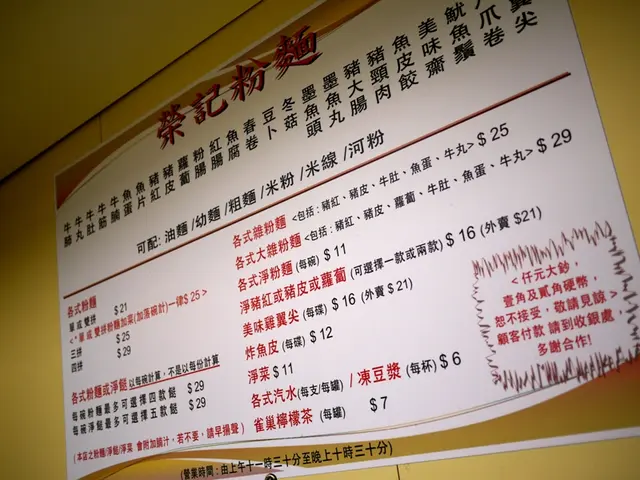 榮記粉麵
牛肺
牛丸
牛肚
牛筋
牛腩
魚蛋
魚片
豬紅
豬皮
蘿蔔
粉腸
紅腸
魚腐
春卷
豆卜
冬菇
墨魚頭
墨魚丸
豬大腸
豬頸肉
魚皮餃
美味齋
魷魚鬚
八爪卷
翼尖
可配: 油麵/幼麵/粗麵/米粉/米線/河粉
各式粉麵
單或雙拼 $21
<*單或雙拼粉麵加菜(加落碗計)一律$25>
三拼 $25
四拼 $29
各式粉麵或淨餸 以每碗計算,不是以每份計算
每碗粉麵最多可選擇四款餸 $29
每碗淨餸最多可選擇五款餸 $29
(本店之粉麵/淨餸/淨菜 會附加腩汁,若不要,請早揚聲)
各式雜粉麵 <包括:豬紅、豬皮、牛肚、魚蛋、牛丸> $25
各式大雜粉麵 <包括:豬紅、豬皮、蘿蔔、牛肚、魚蛋、牛丸> $29
各式淨粉麵 (每碗) $11
淨豬紅或豬皮或蘿蔔 (可選擇一款或兩款) $16 (外賣 $21)
美味雞翼尖 (每碟) $16 (外賣 $21)
炸魚皮 (每碟) $12
淨菜 $11
各式汽水(每支/每罐) / 凍豆漿 (每杯) $6
雀巢檸檬茶 (每罐) $7
<仟元大鈔,
壹角及貳角硬幣,
恕不接受,敬請見諒>
顧客付款 請到收銀處,
多謝合作!
(營業時間:由上午十一時三十分至晚上十時三十分)